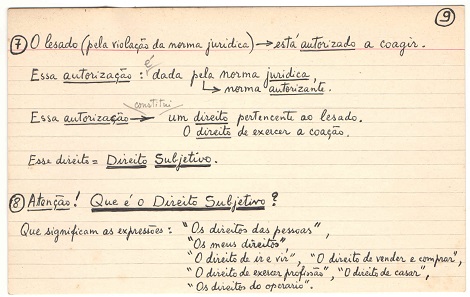 9
7 O lesado (pela violação da norma jurídica) → está autorizado a coagir.
é
Essa autorização : dada pela norma jurídica,
↳ norma autorizante.
constitui
Essa autorização → um direito pertencente ao lesado.
O direito de exercer a coação.
Esse direito = Direito Subjetivo.
8 Atenção! Que é o Direito Subjetivo?
Que significam as expressões : "Os direitos das pessoas",
"Os meus direitos"
"O direito de ir e vir", "O direito de vender e comprar",
"O direito de exercer profissão", "O direito de casar",
"Os direitos do operario".